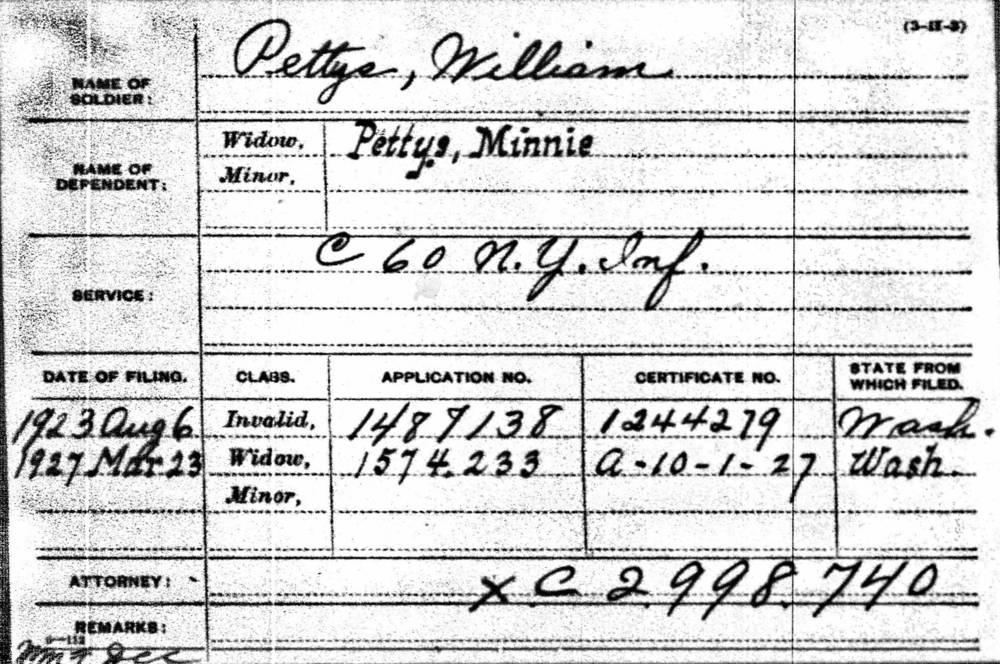 (3-II-3)
NAME OF SOLDIER: Pettys, William
NAME OF DEPENDENT: Widow, Pettys, Minnie
Minor,
SERVICE: C 60 N.Y. Inf.
DATE OF FILING. CLASS. APPLICATION NO. CERTIFICATE NO. STATE FROM WHICH FILED.
1923 Aug 6 Invalid, 1487138 1244279 Wash.
1927 Mar 23 Widow, 1574.233 A-10-1-27 Wash.
Minor,
ATTORNEY: XC 2 998 740
REMARKS: